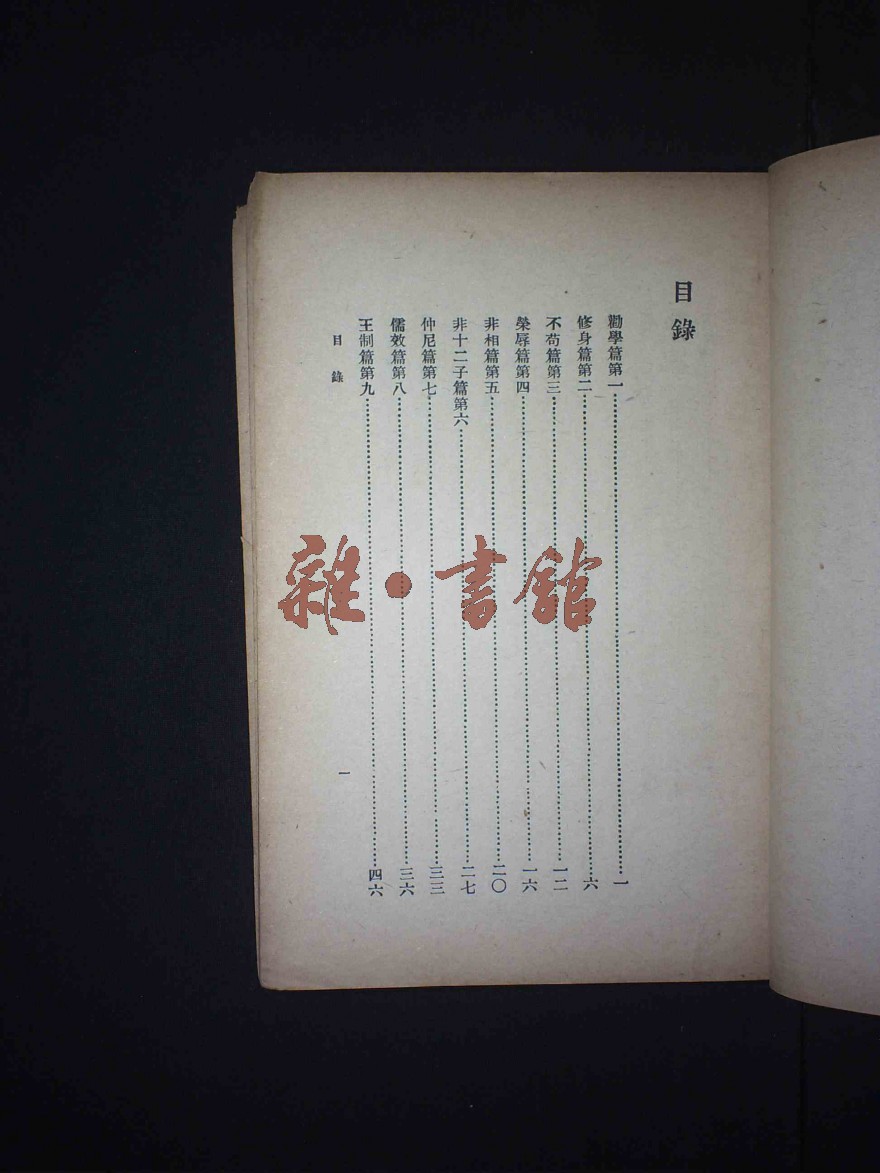 目錄
勸學篇第一……一
修身篇第二……六
不苟篇第三……一二
榮辱篇第四……一六
非相篇第五……二〇
非十二子篇第六……二七
仲尼篇第七……三三
儒效篇第八……三六
王制篇第九……四六
目錄
一
雜·書館